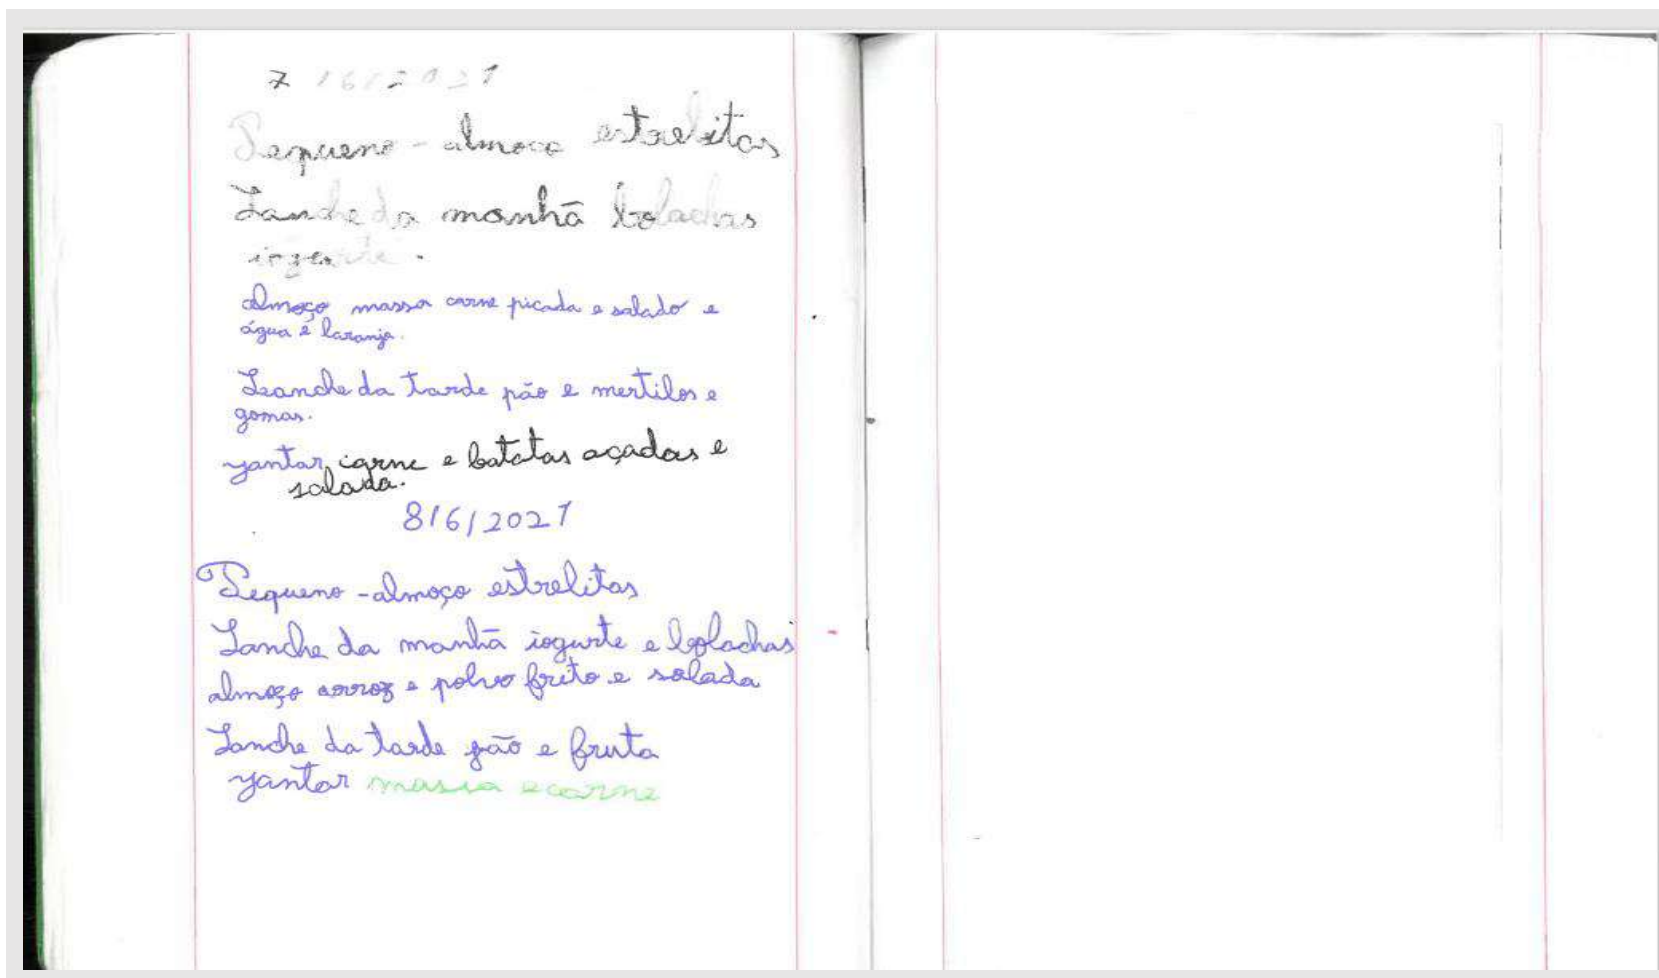 7/6/2021
Pequeno-almoço estrelitas
Lanche da manhã bolachas
iogurte.
almoço massa carne picada e salado e
água e laranja.
Leanche da tarde pão e mertilos e
gomas.
yantar carne e batatas açadas e
salada.
8/6/2021
Pequeno-almoço estrelitas
Lanche da manhã iogurte e bolachas
almoço arroz e polvo frito e salada
Lanche da tarde pão e fruta
yantar massa e carne